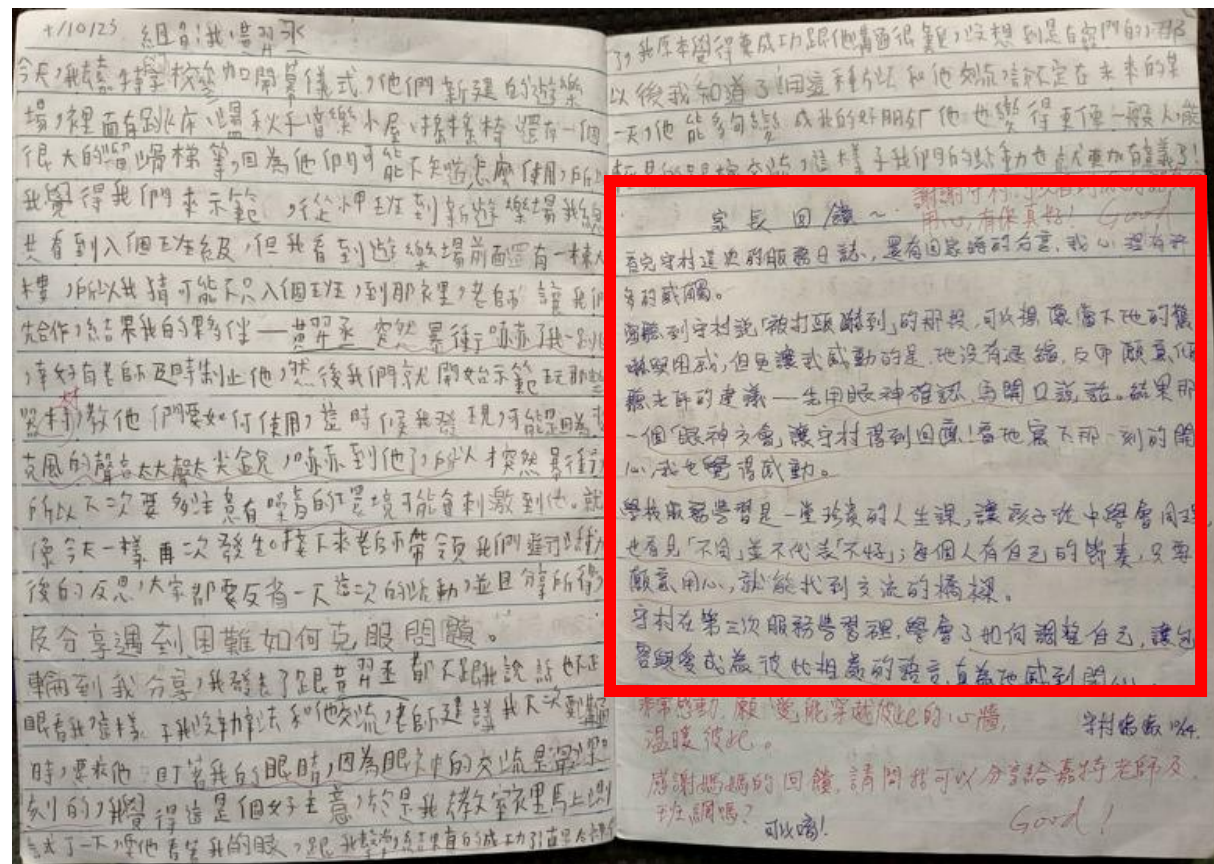 十/10/23 組員:我、黃羿丞
今天,我去嘉特學校參加開幕儀式,他們新建的遊樂
場,裡面有跳床、盪秋千、音樂小屋、搖搖椅還有一個
很大的溜滑梯等,因為他們可能不知道怎麼使用,所以
我覺得我們來示範,從小甲班到新遊樂場我總
共看到八個班級,但我看到遊樂場前面還有一棟大
樓,所以我猜可能不只八個班,到那裡,老師讓我們
先合作,結果我的夥伴——黃羿丞突然暴衝,嚇了我一跳
,幸好有老師及時制止他,然後我們就開始示範玩那些
器材,教他們要如何使用,這時候我發現,可能是因為麥
克風的聲音太大聲太尖銳,嚇到他了,所以才突然暴衝,
所以下次要多注意有噪音的環境可能會刺激到他。就
像今天一樣再次發生。接下來老師帶領我們進行活動
後的反思,大家都要反省一下這次的活動,並且分享所得
及分享遇到困難如何克服問題。
輪到我分享,我發表了跟黃羿丞都不跟我說話也不正
眼看我這樣子我沒辦法和他交流,老師建議我下次
時,要求他盯著我的眼睛,因為眼神中的交流是最深
刻的,我覺得這是個好主意,於是我在教室裡馬上測
試了一下,要他看著我的眼,跟我擊掌,結果真的成功
了,我原本覺得要成功跟他溝通很難,沒想到是有竅門的,
以後我知道了用這種方法和他交流,說不定在未來的某
一天,他能夠變成我的好朋友,他也變得更像一般人,能
這樣子我們的活動也就更加有意義了!
謝謝守村
用心,有你真好! Good
家長回饋~
看完守村這次的服務日誌,還有回家時的分享,我心裡有許
多的感觸。
當聽到守村說「被打頭嚇到」的那段,可以想像當下他的驚
嚇與困惑,但更讓我感動的是,他沒有退縮,反而願意傾
聽老師的建議——先用眼神確認,再開口說話。結果那
一個「眼神交會」讓守村得到回應!當他寫下那一刻的開
心,我也覺得感動。
學校服務學習是一堂珍貴的人生課,讓孩子從中學會同理,
也看見「不同」並不代表「不好」;每個人有自己的節奏,只要
願意用心,就能找到交流的橋樑。
守村在第三次服務學習裡,學會了如何調整自己,讓包
容與愛成為彼此相處的語言,真為他感到開心。
非常感動,願「愛」能穿越彼此的心牆,
溫暖彼此。
守村媽媽 10/24.
感謝媽媽的回饋,請問我可以分享給嘉特老師及
班網嗎?
可以唷!
Good!